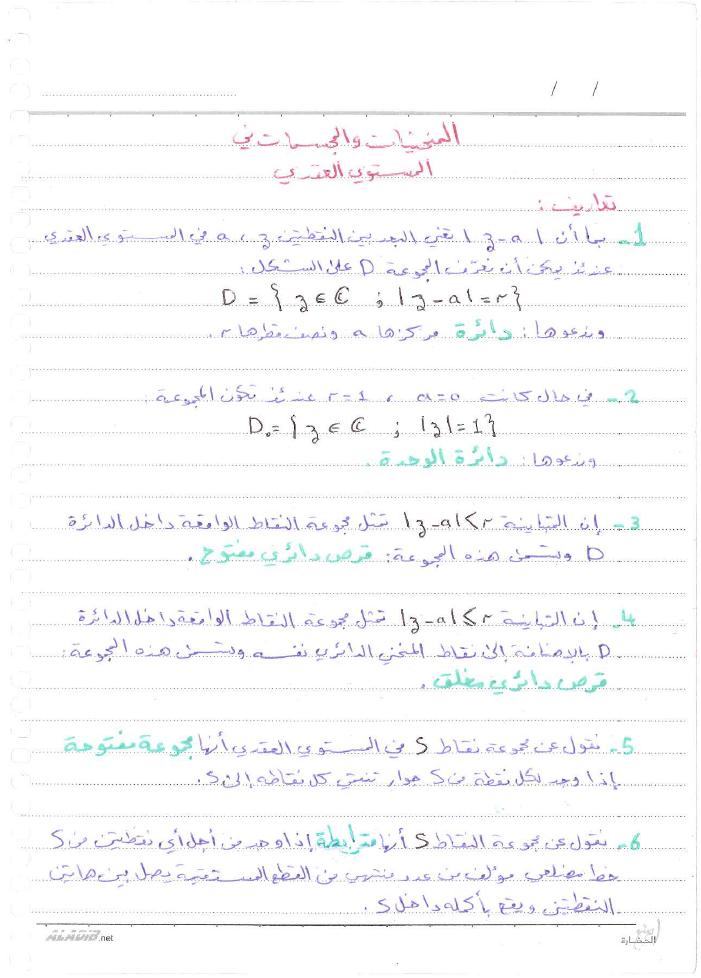 / /
المنحنيات والمجسمات في
المستوي العقدي
تعاريف :
1- بما أن |z-a| تعني البعد بين النقطتين z ، a في المستوي العقدي
عندئذ يمكن أن نعرّف المجموعة D على الشكل :
D = { z ∈ ℂ ; |z-a| = r }
وندعوها : دائرة مركزها a ونصف قطرها r .
2- في حال كانت a=0 ، r=1 عندئذ تكون المجموعة :
D₀ = { z ∈ ℂ ; |z|=1 }
وندعوها : دائرة الوحدة .
3- إن التباينة |z-a|<r تمثل مجموعة النقاط الواقعة داخل الدائرة
D وتسمى هذه المجموعة : قرص دائري مفتوح .
4- إن التباينة |z-a|≤r تمثل مجموعة النقاط الواقعة داخل الدائرة
D بالإضافة إلى نقاط المنحني الدائري نفسه وتسمى هذه المجموعة :
قرص دائري مغلق .
5- نقول عن مجموعة نقاط S في المستوي العقدي أنها مجموعة مفتوحة
إذا وجد لكل نقطة من S جوار تنتمي كل نقاطه إلى S .
6- نقول عن مجموعة النقاط S أنها مترابطة إذا وجد من أجل أي نقطتين من S
خط مضلعي مؤلف من عدد منتهي من القطع المستقيمة يصل بين هاتين
النقطتين ويقع بأكمله داخل S .
ALADIB.net
الحضارة